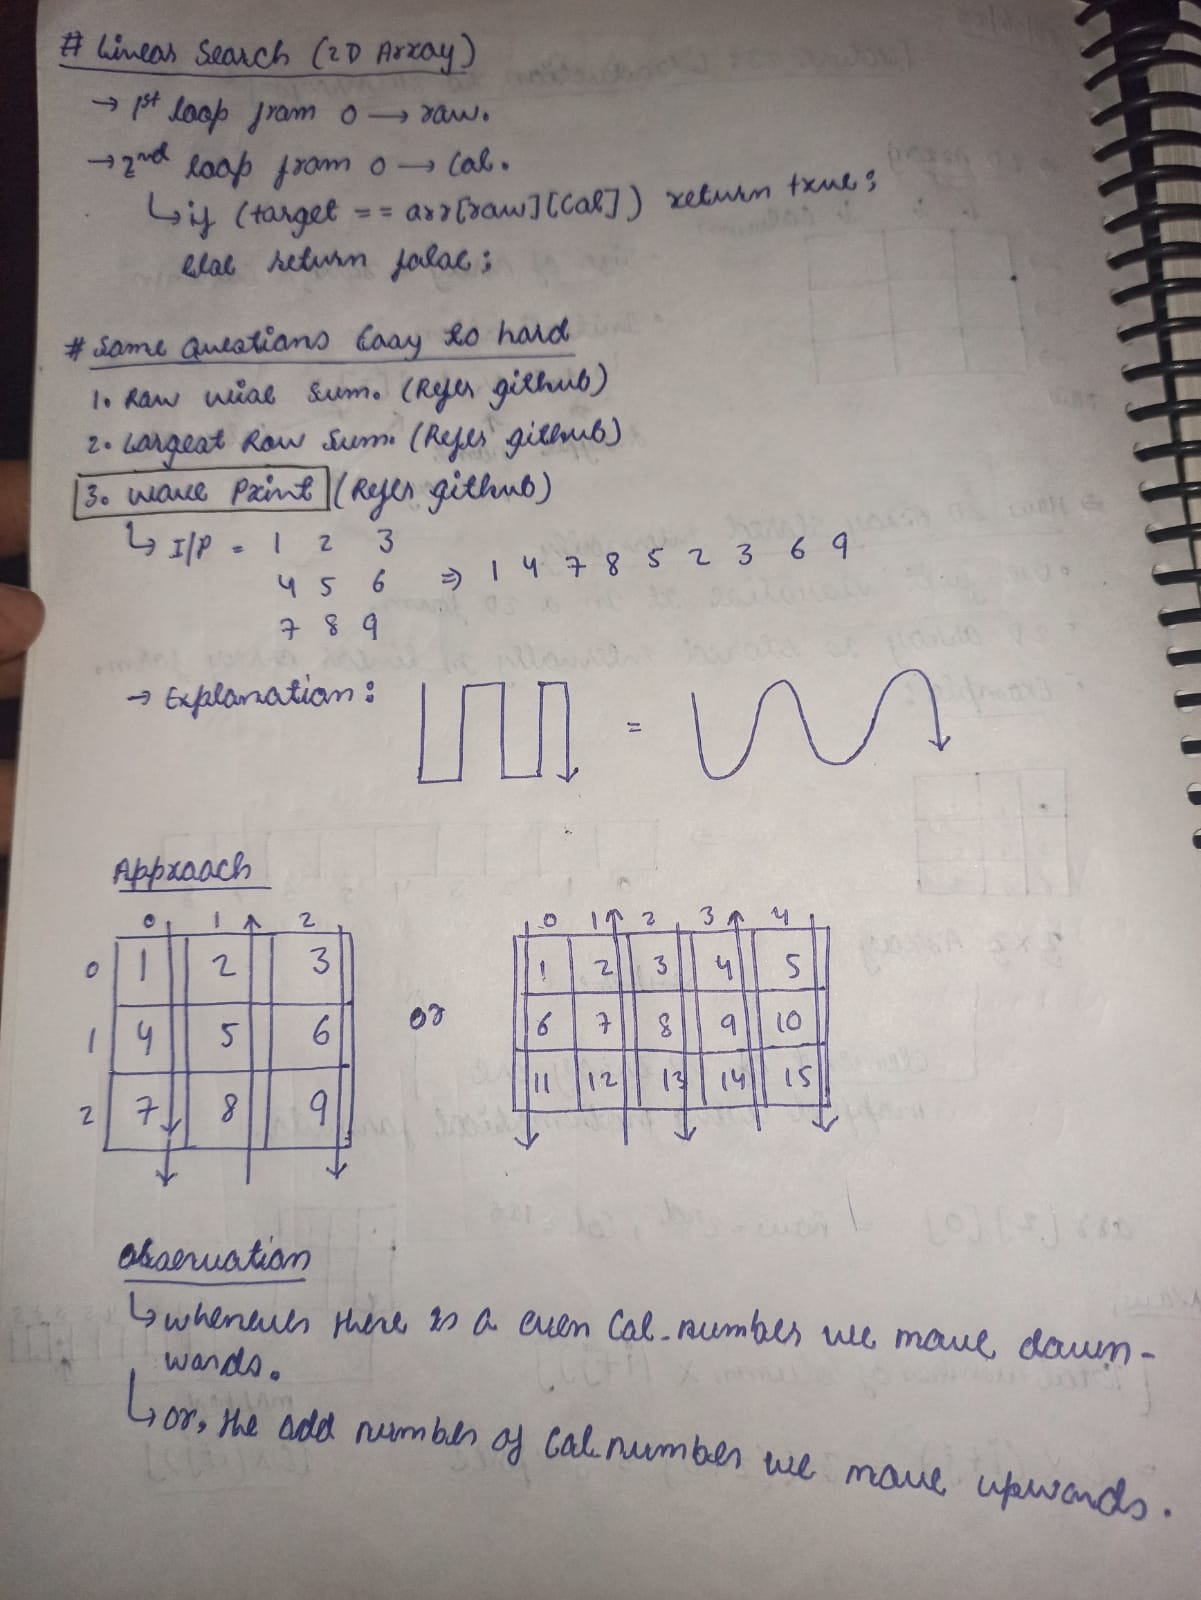 # Linear Search (2D Array)
→ 1st loop from 0 → row.
→ 2nd loop from 0 → Col.
↳ if (target == arr[row][Col]) return true;
else return false;
# Some Questions Easy to hard
1. Row wise Sum. (Refer github)
2. Largest Row Sum. (Refer github)
3. Wave Print (Refer github)
↳ I/P = 1 2 3
4 5 6 ⇒ 1 4 7 8 5 2 3 6 9
7 8 9
→ Explanation:
=
Approach
0 1 2
0 1 2 3
1 4 5 6
2 7 8 9
or
0 1 2 3 4
1 2 3 4 5
6 7 8 9 10
11 12 13 14 15
Observation
↳ whenever there is a even Col. number we move down-
wards.
↳ or, the odd number of Col. number we move upwards.